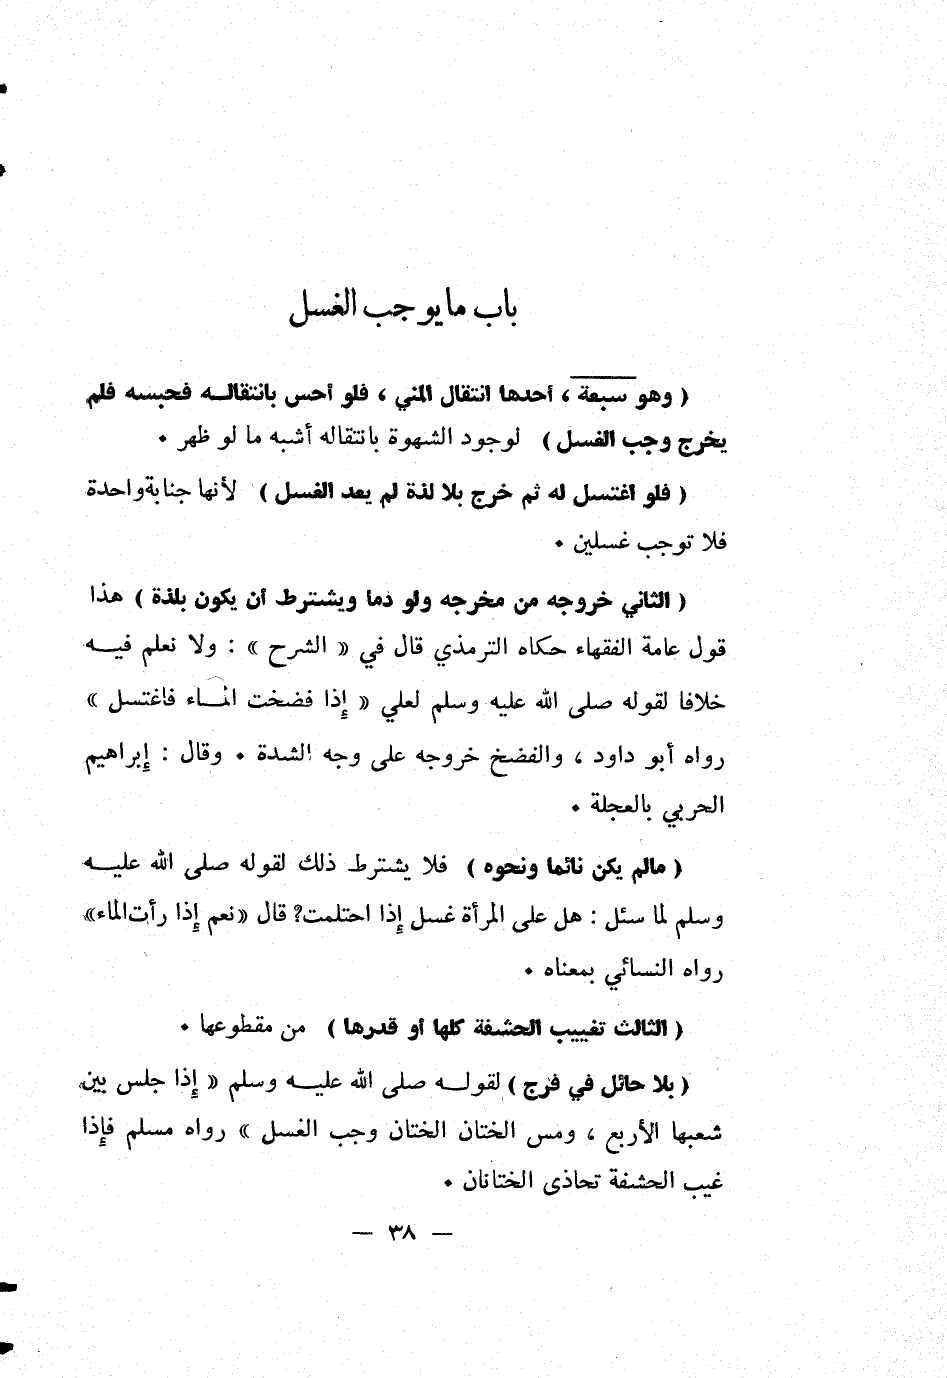 باب ما يوجب الغسل
( وهو سبعة ، أحدها انتقال المني ، فلو أحس بانتقاله فحبسه فلم
يخرج وجب الغسل ) لوجود الشهوة بانتقاله أشبه ما لو ظهر .
( فلو اغتسل له ثم خرج بلا لذة لم يعد الغسل ) لأنها جنابة واحدة
فلا توجب غسلين .
( الثاني خروجه من مخرجه ولو دما ويشترط أن يكون بلذة ) هذا
قول عامة الفقهاء حكاه الترمذي قال في « الشرح » : ولا نعلم فيه
خلافا لقوله صلى الله عليه وسلم لعلي « إذا فضخت الماء فاغتسل »
رواه أبو داود ، والفضخ خروجه على وجه الشدة . وقال : إبراهيم
الحربي بالعجلة .
( مالم يكن نائما ونحوه ) فلا يشترط ذلك لقوله صلى الله عليه
وسلم لما سئل : هل على المرأة غسل إذا احتلمت؟ قال «نعم إذا رأت الماء»
رواه النسائي بمعناه .
( الثالث تغييب الحشفة كلها أو قدرها ) من مقطوعها .
( بلا حائل في فرج ) لقوله صلى الله عليه وسلم « إذا جلس بين
شعبها الأربع ، ومس الختان الختان وجب الغسل » رواه مسلم فإذا
غيب الحشفة تحاذى الختانان .
— ٣٨ —